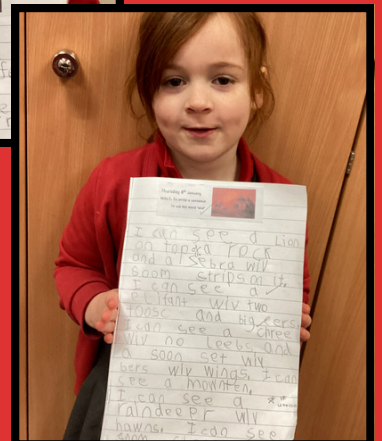 Thursday 6th January
I can see a Lion
on top of a rock
and a sebra wiv
soom strips on it.
I can see a
elifant wiv two
toosc and big eers
I can see a chree
wiv no leebs and
a soon set wiv
bers wiv wings. I can
see a mownten,
I can see a
raindeeper wiv
hawns. I can see